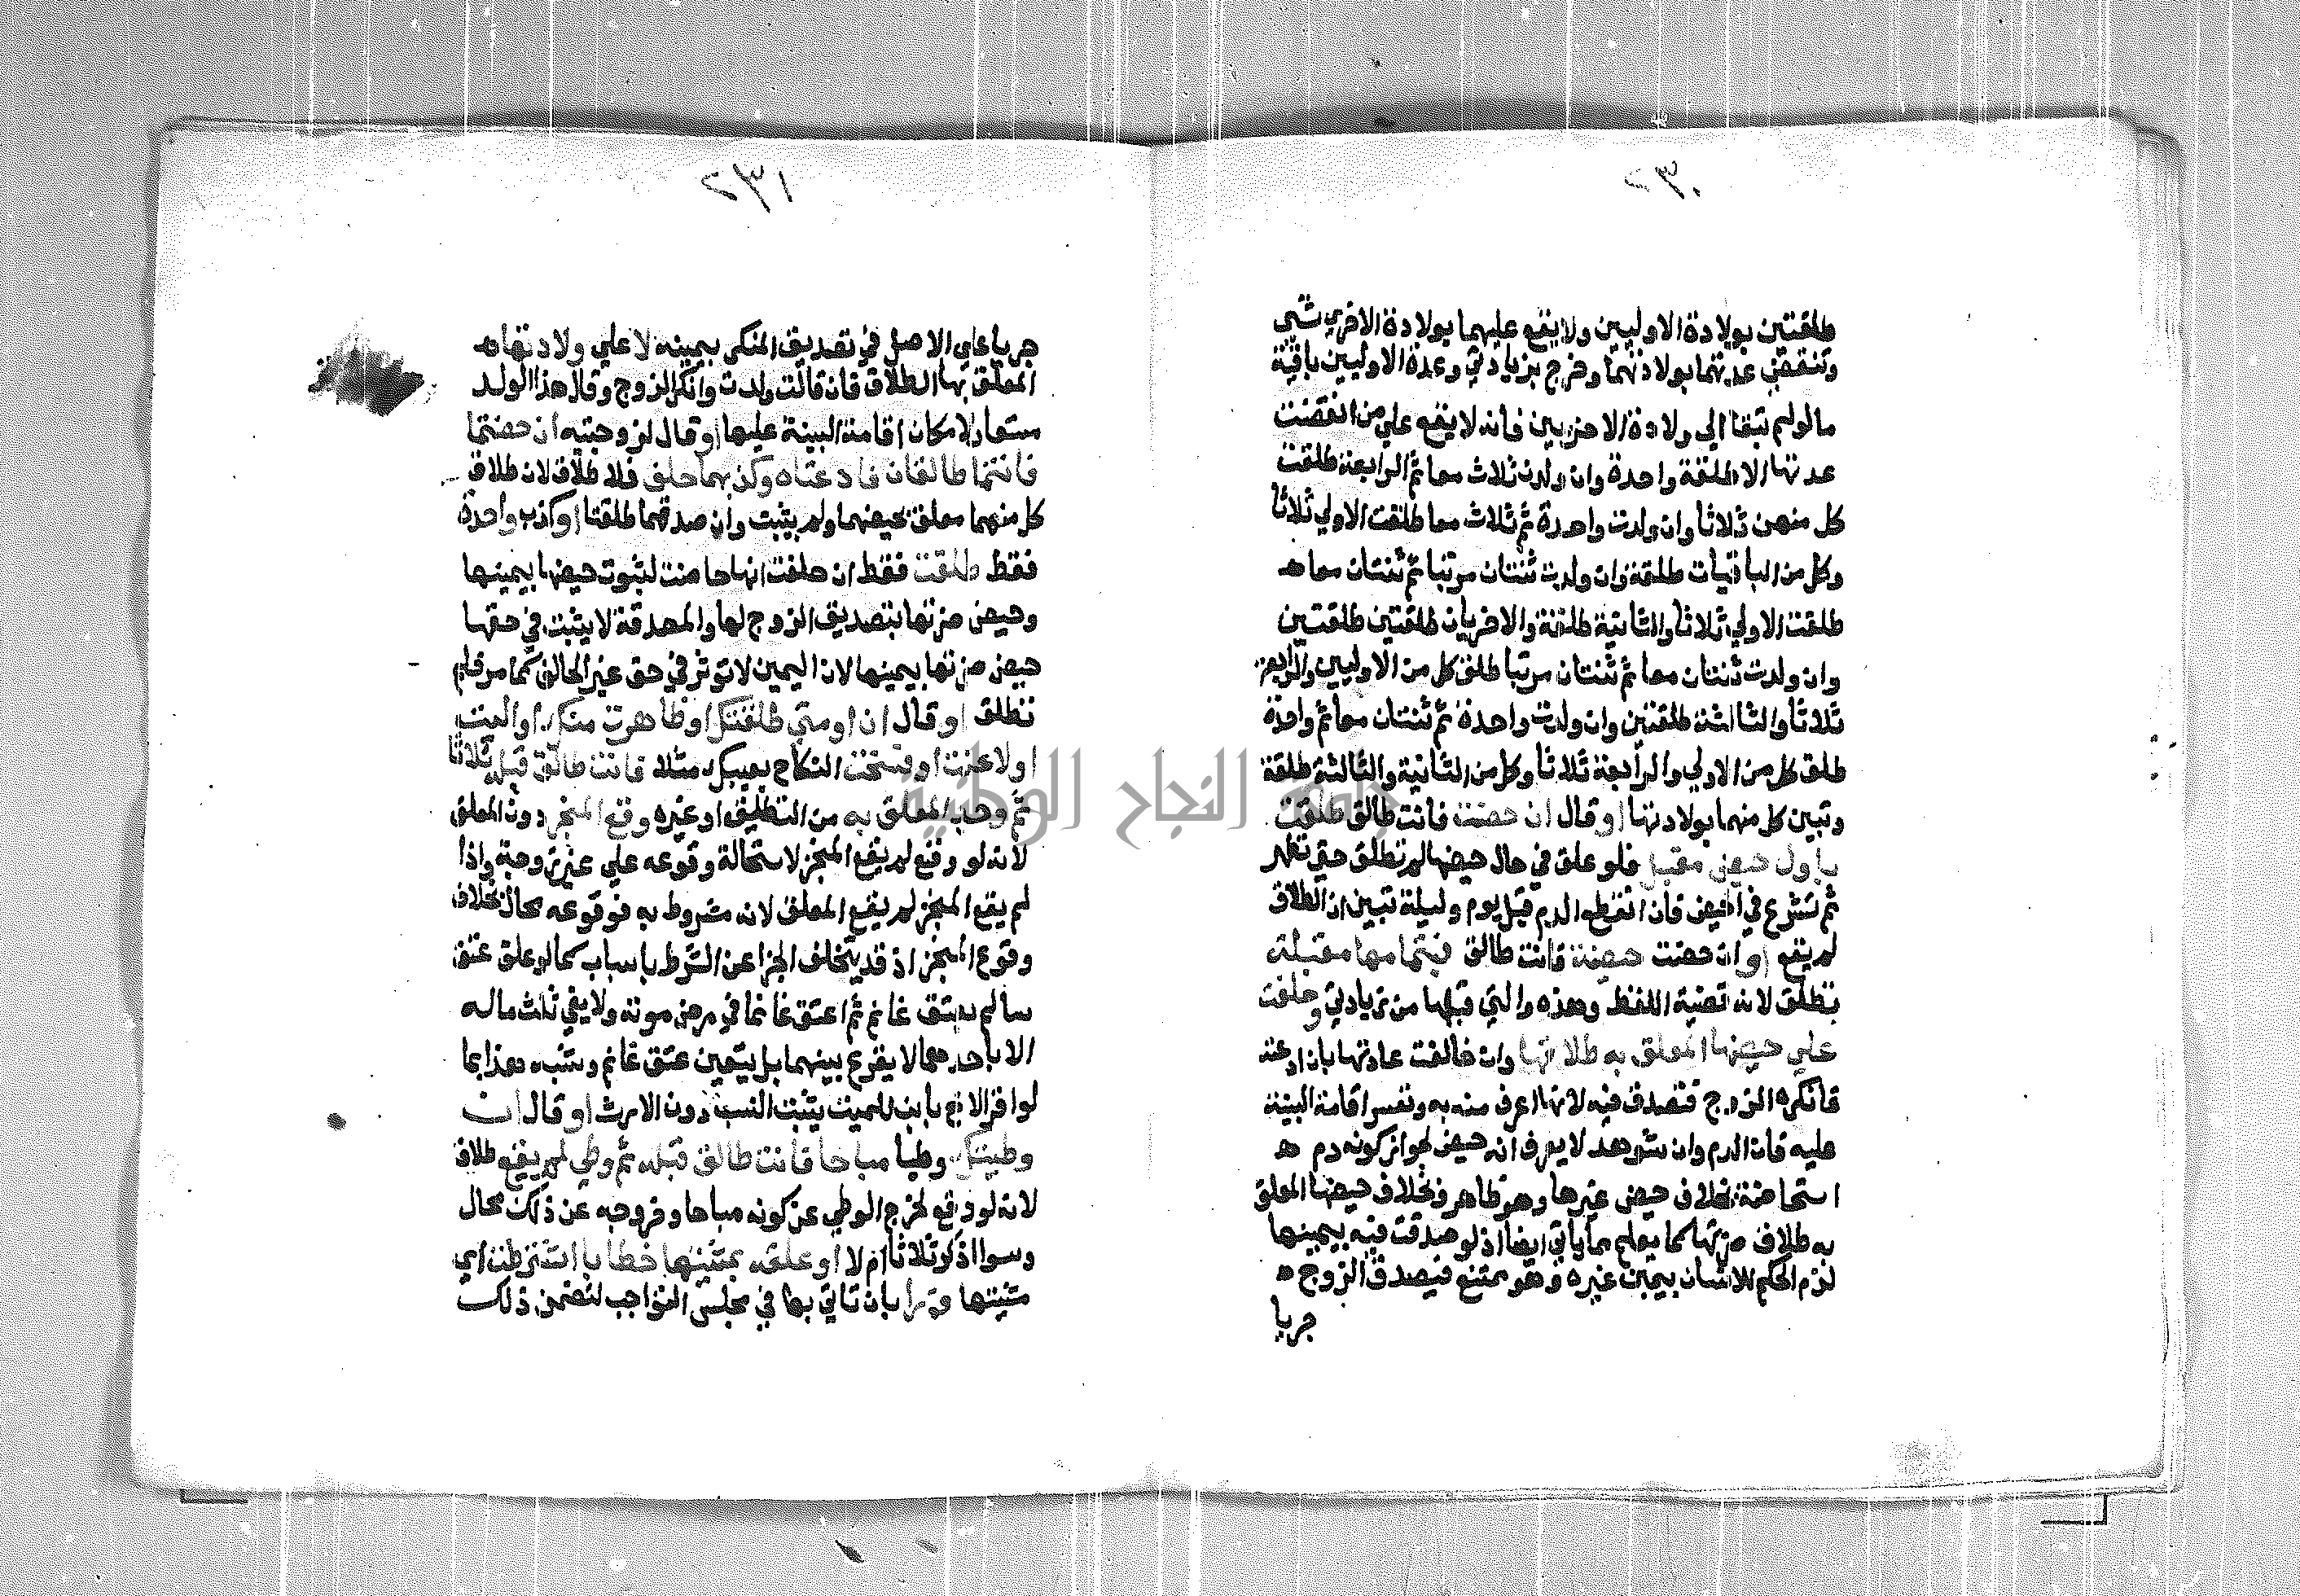 ٢٣٠
طلقتين بولادة الاوليين ولا يقع عليهما بولادة الاخري شي
وتنقضي عدتهما بولادتهما وخرج بزيادتي وعدة الاوليين باقية
مالو لم تبقا الي ولادة الاخريين فانه لا يقع علي من انقضت
عدتها الا طلقة واحدة وان ولدن ثلاث معا ثم الرابعة طلقت
كل منهن ثلاثا وان ولدت واحدة ثم ثلاث معا طلقت الاولي ثلاثا
وكل من الباقيات طلقة وان ولدت ثنتان مرتبا ثم ثنتان معا هـ
طلقت الاولي ثلاثا والثانية طلقة والاخريان طلقتين طلقتين
وان ولدت ثنتان معا ثم ثنتان مرتبا طلق كل من الاوليين والرابعة
ثلاثا والثالثة طلقتين وان ولدت واحدة ثم ثنتان معا ثم واحدة
طلق كل من الاولي والرابعة ثلاثا وكل من الثانية والثالثة طلقة
وتبين كل منهما بولادتها او قال ان حضت فانت طالق طلقت
باول حيض مقبل فلو علق في حال حيضها لم تطلق حتي تطهر
ثم تشرع في الحيض فان انقطع الدم قبل يوم وليلة تبين ان الطلاق
لم يقع او ان حضت حيضة فانت طالق فبتمامها مقبلة
تطلق لانه قضية اللفظ وهذه والتي قبلها من زيادتي وحلفت
علي حيضها المعلق به طلاقها وان خالفت عادتها بان ادعته
فانكره الزوج فتصدق فيه لانها اعرف منه به وتعسر اقامة البينة
عليه فان الدم وان شوهد لا يعرف انه حيض لجواز كونه دم هـ
استحاضة بخلاف حيض غيرها وهو ظاهر وبخلاف حيضها المعلق
به طلاق ضرتها كما يعلم مما ياتي ايضا اذ لو صدقت فيه بيمينها
لزم الحكم للانسان بيمين غيره وهو ممتنع فيصدق الزوج هـ
جريا
٢٣١
جريا علي الاصل في تصديق المنكر بيمينه لا علي ولادتها هـ
المعلق بها الطلاق فان قالت ولدت وانكر الزوج وقال هذا الولد
مستعار لامكان اقامة البينة عليها او قال لزوجتيه ان حضتما
فانتما طالقان فادعتاه وكذبهما حلف فلا طلاق لان طلاق
كل منهما معلق بحيضهما ولم يثبت وان صدقهما طلقتا او كذب واحدة
فقط طلقت فقط ان حلفت انها حاضت لثبوت حيضها بيمينها
وحيض ضرتها بتصديق الزوج لها والمصدقة لا يثبت في حقها
حيض ضرتها بيمينها لان اليمين لا تؤثر في حق غير الحالف كما مر فلم
تطلق او قال ان او متي طلقتك او ظاهرت منك او اليت
او لاعنت او فسخت النكاح بعيبك مثلا فانت طالق قبله ثلاثا
ثم وجد المعلق به من التطليق او غيره وقع المنجز دون المعلق
لانه لو وقع لم يقع المنجز لاستحالة وقوعه علي غير زوجة واذا
لم يقع المنجز لم يقع المعلق لانه مشروط به فوقوعه محال بخلاف
وقوع المنجز اذ قد يتخلف الجزا عن الشرط باسباب كما لو علق عتق
سالم بعتق غانم ثم اعتق غانما في مرض موته ولا يفي ثلث ماله
الا باحدهما لا يقرع بينهما بل يتعين عتق غانم وشبه هذا بما
لو اقر الاخ بابن للميت يثبت النسب دون الارث او قال ان
وطيتك وطيا مباحا فانت طالق قبله ثم وطي لم يقع طلاق
لانه لو وقع لخرج الوطي عن كونه مباحا وخروجه عن ذلك محال
وسوا اذكر ثلاثا ام لا او علقه بمشيتها خطابا اشترطت اي
مشيتها فورا بان تاتي بها في مجلس التواجب لتضمن ذلك
جامعة النجاح الوطنية